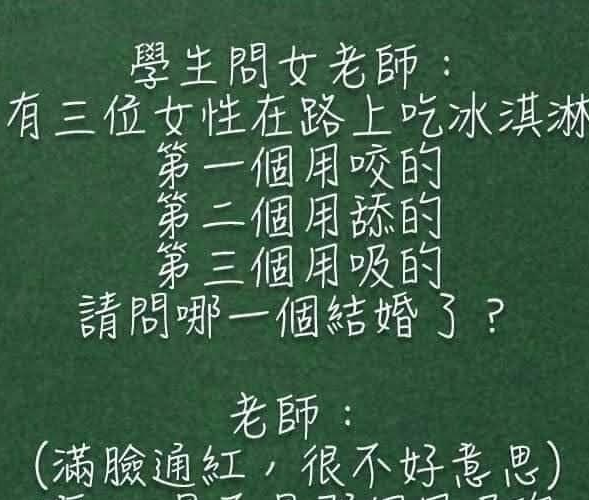 學生問女老師：
有三位女性在路上吃冰淇淋
第一個用咬的
第二個用舔的
第三個用吸的
請問哪一個結婚了？
老師：
(滿臉通紅，很不好意思)